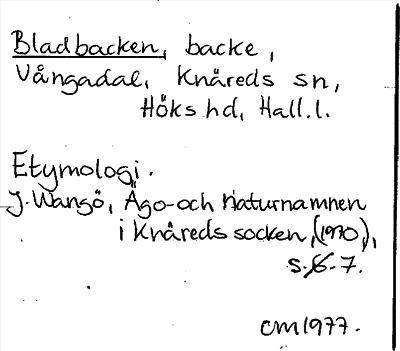 Bladbacken, backe,
Vångadal, Knäreds sn,
Höks hd, Hall.l.
Etymologi.
J. Wangö, Ägo- och Naturnamnen
i Knäreds socken, (1970),
s. 6-7.
cm1977.